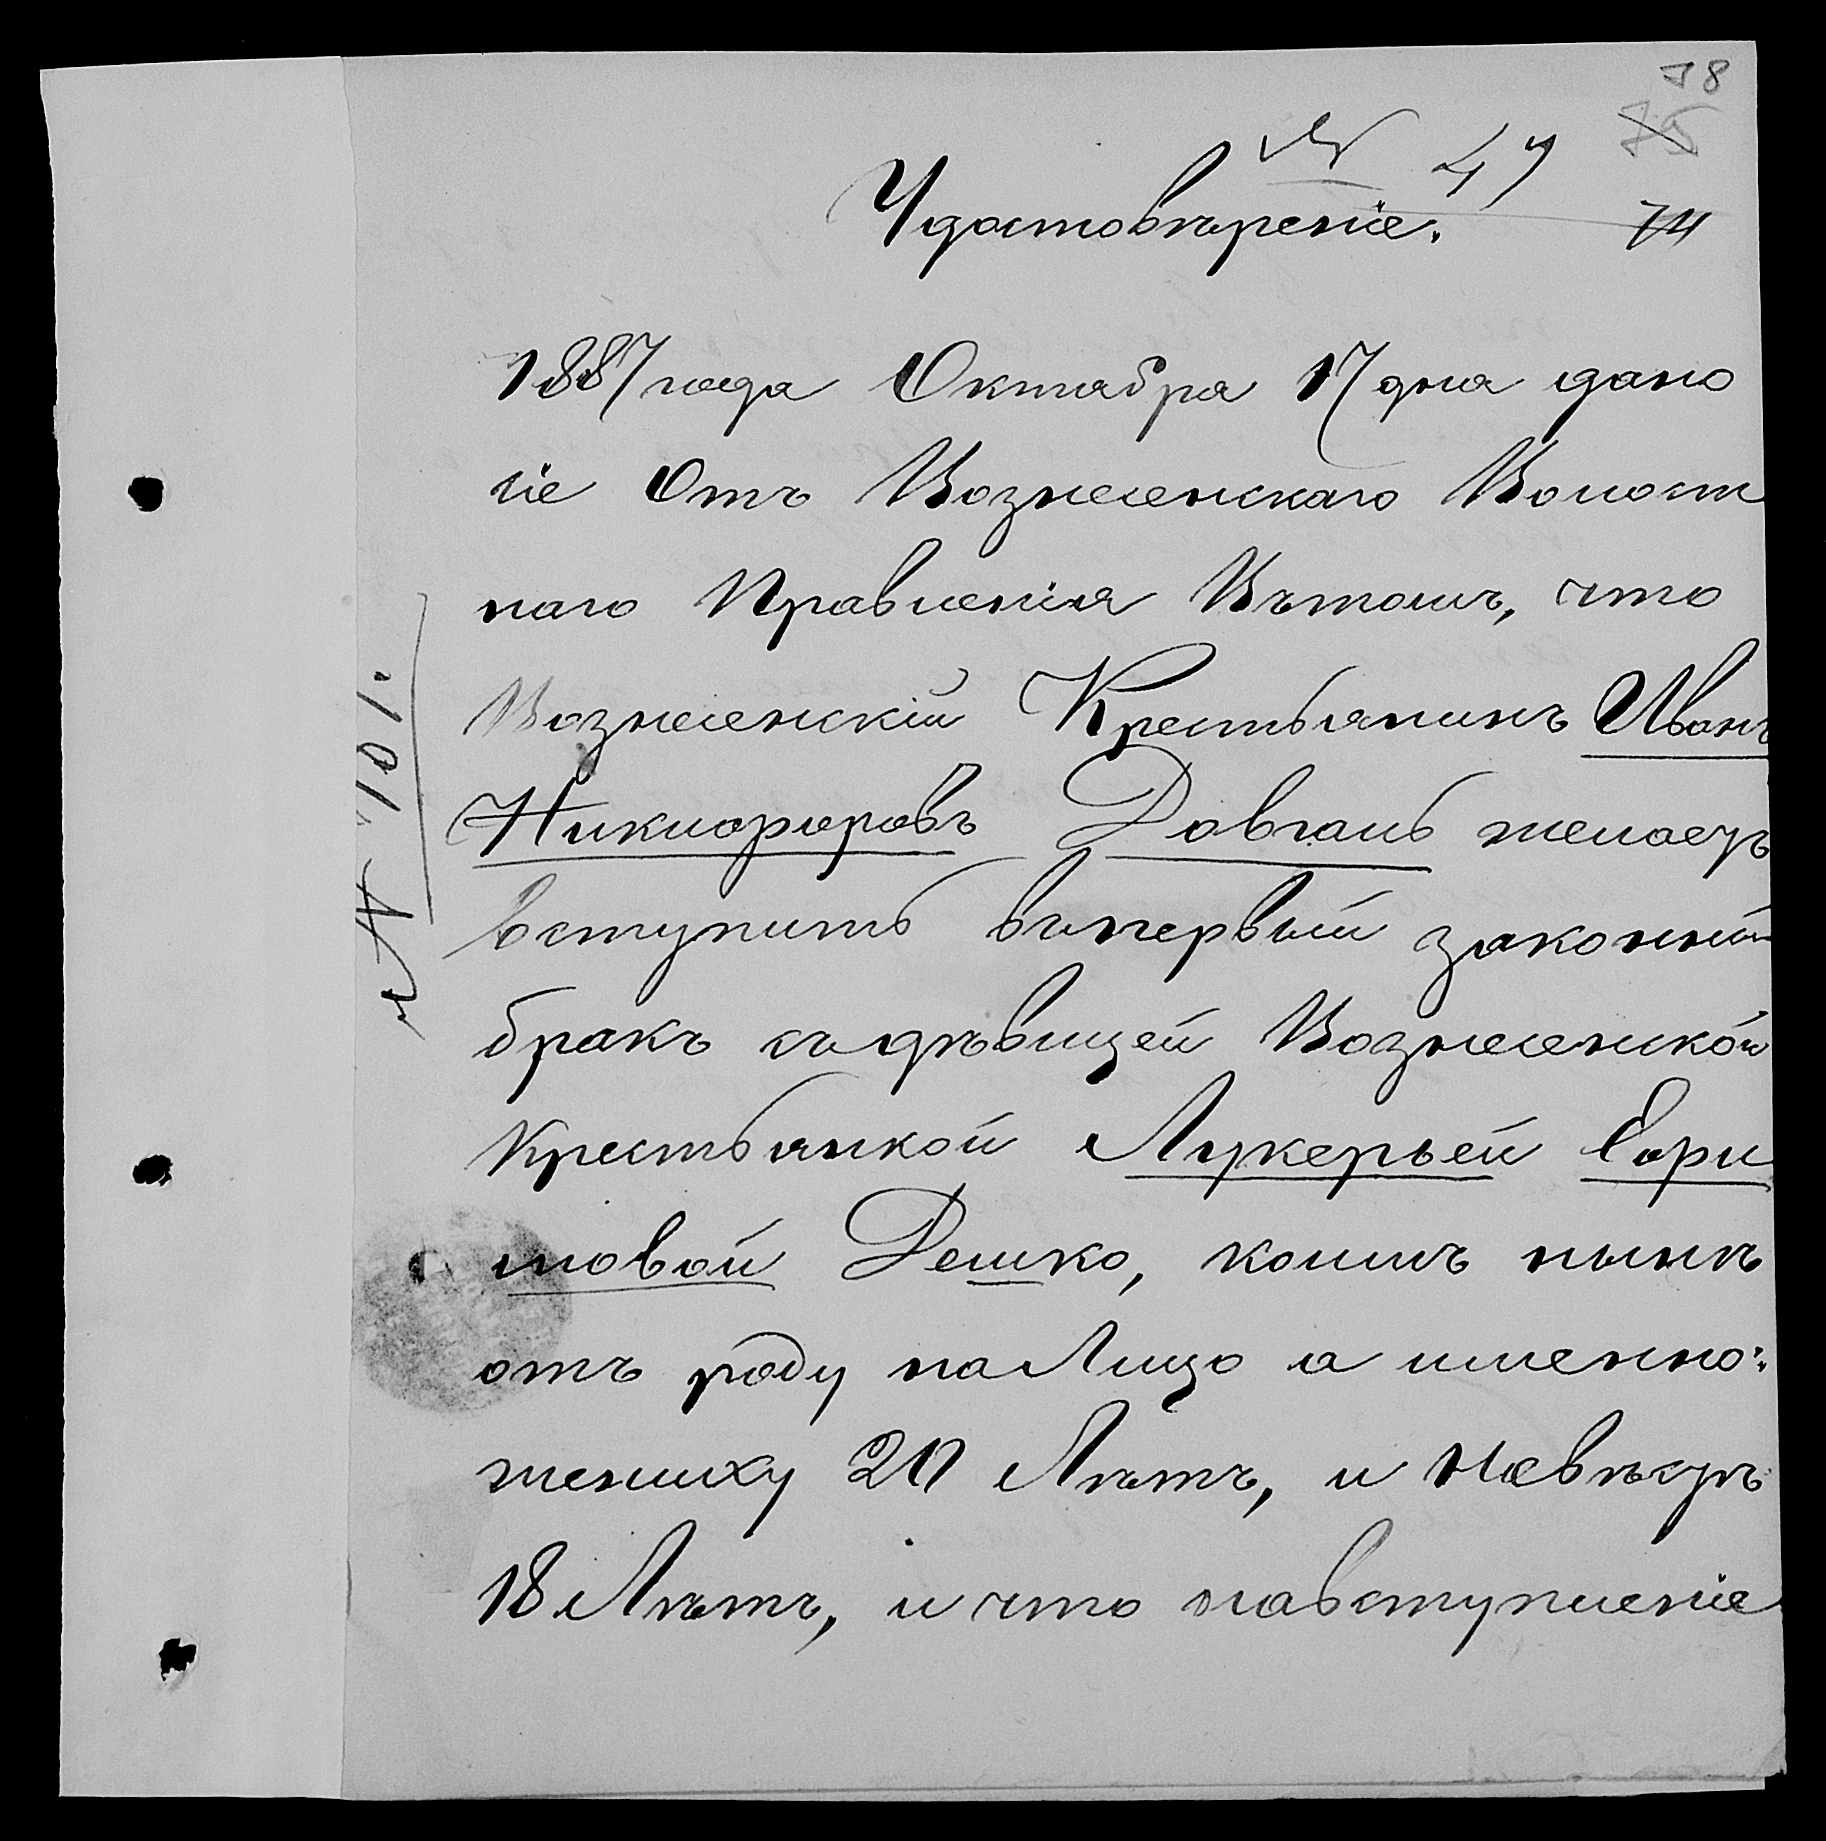 78
75
№ 47
Удостовѣреніе.
74
1887 года Октября 17 дня дано
сіе Отъ Вознесенскаго Волост
наго Правленія Вътомъ, что
Вознесенскій Крестьянинъ Иванъ
Никифоровъ Довгаль желаетъ
вступить въпервый законный
бракъ съдѣвицей Вознесенской
Крестьянкой Лукерьей Ефи
мовой Дешко, коимъ нынѣ
отъ роду налицо а именно:
жениху 20 Лѣтъ, и Невѣстѣ
18 Лѣтъ, и что навступленіе
№ 101.